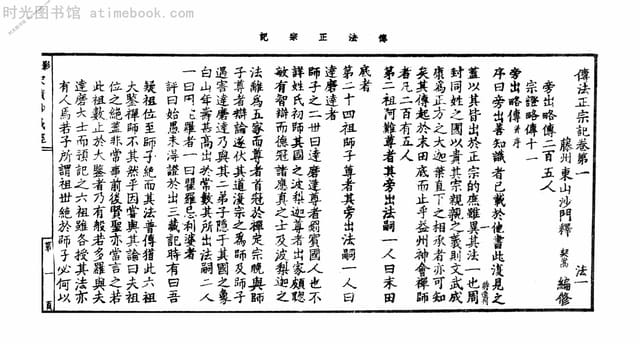 时光图书馆 - atimebook.com
傳法正宗記
傳法正宗記卷第一 法一
藤州東山沙門釋 契嵩 編修
旁出略傳二百五人
宗證略傳十一
序曰旁出善知識者已載於他書此復見之
蓋以其皆出於正宗的庶雖異其法一也周
封同姓之國以貴其宗親親之義則文武成
康為正方之大迦葉直下之相承者亦可知
矣其傳起於末田底而止乎益州神會禪師
者凡二百有五人
第二祖阿難尊者其旁出法嗣一人曰末田
底者
第二十四祖師子尊者其旁出法嗣一人曰
達磨達者
師子之二世曰達磨達尊者罽賓國人也不
詳姓氏初師其國之波梨迦尊者出家頗聰
敏有智辯而德冠諸應真之士及波梨迦之
法離為五家而尊者首冠於禪定宗晚與師
子尊者辯論遂伏其道復宗之為師及師子
遇害達磨達乃與其二弟子隱于其國之象
白山年壽甚高出於常數其所出法嗣二人
一曰因陀羅者一曰瞿羅忌利婆者
評曰始愚未得證於出三藏記時有曰吾
疑祖位至師子絕而其法普傳猶此六祖
大鑒禪師不其然乎愚嘗與其論曰夫祖
位之絕蓋非常事前後賢聖亦當言之若
此祖數止於大鑒者乃有般若多羅與夫
達磨大士而預記之六祖雖各授其法亦
有人焉若子所謂祖世絕於師子必何以
第一頁